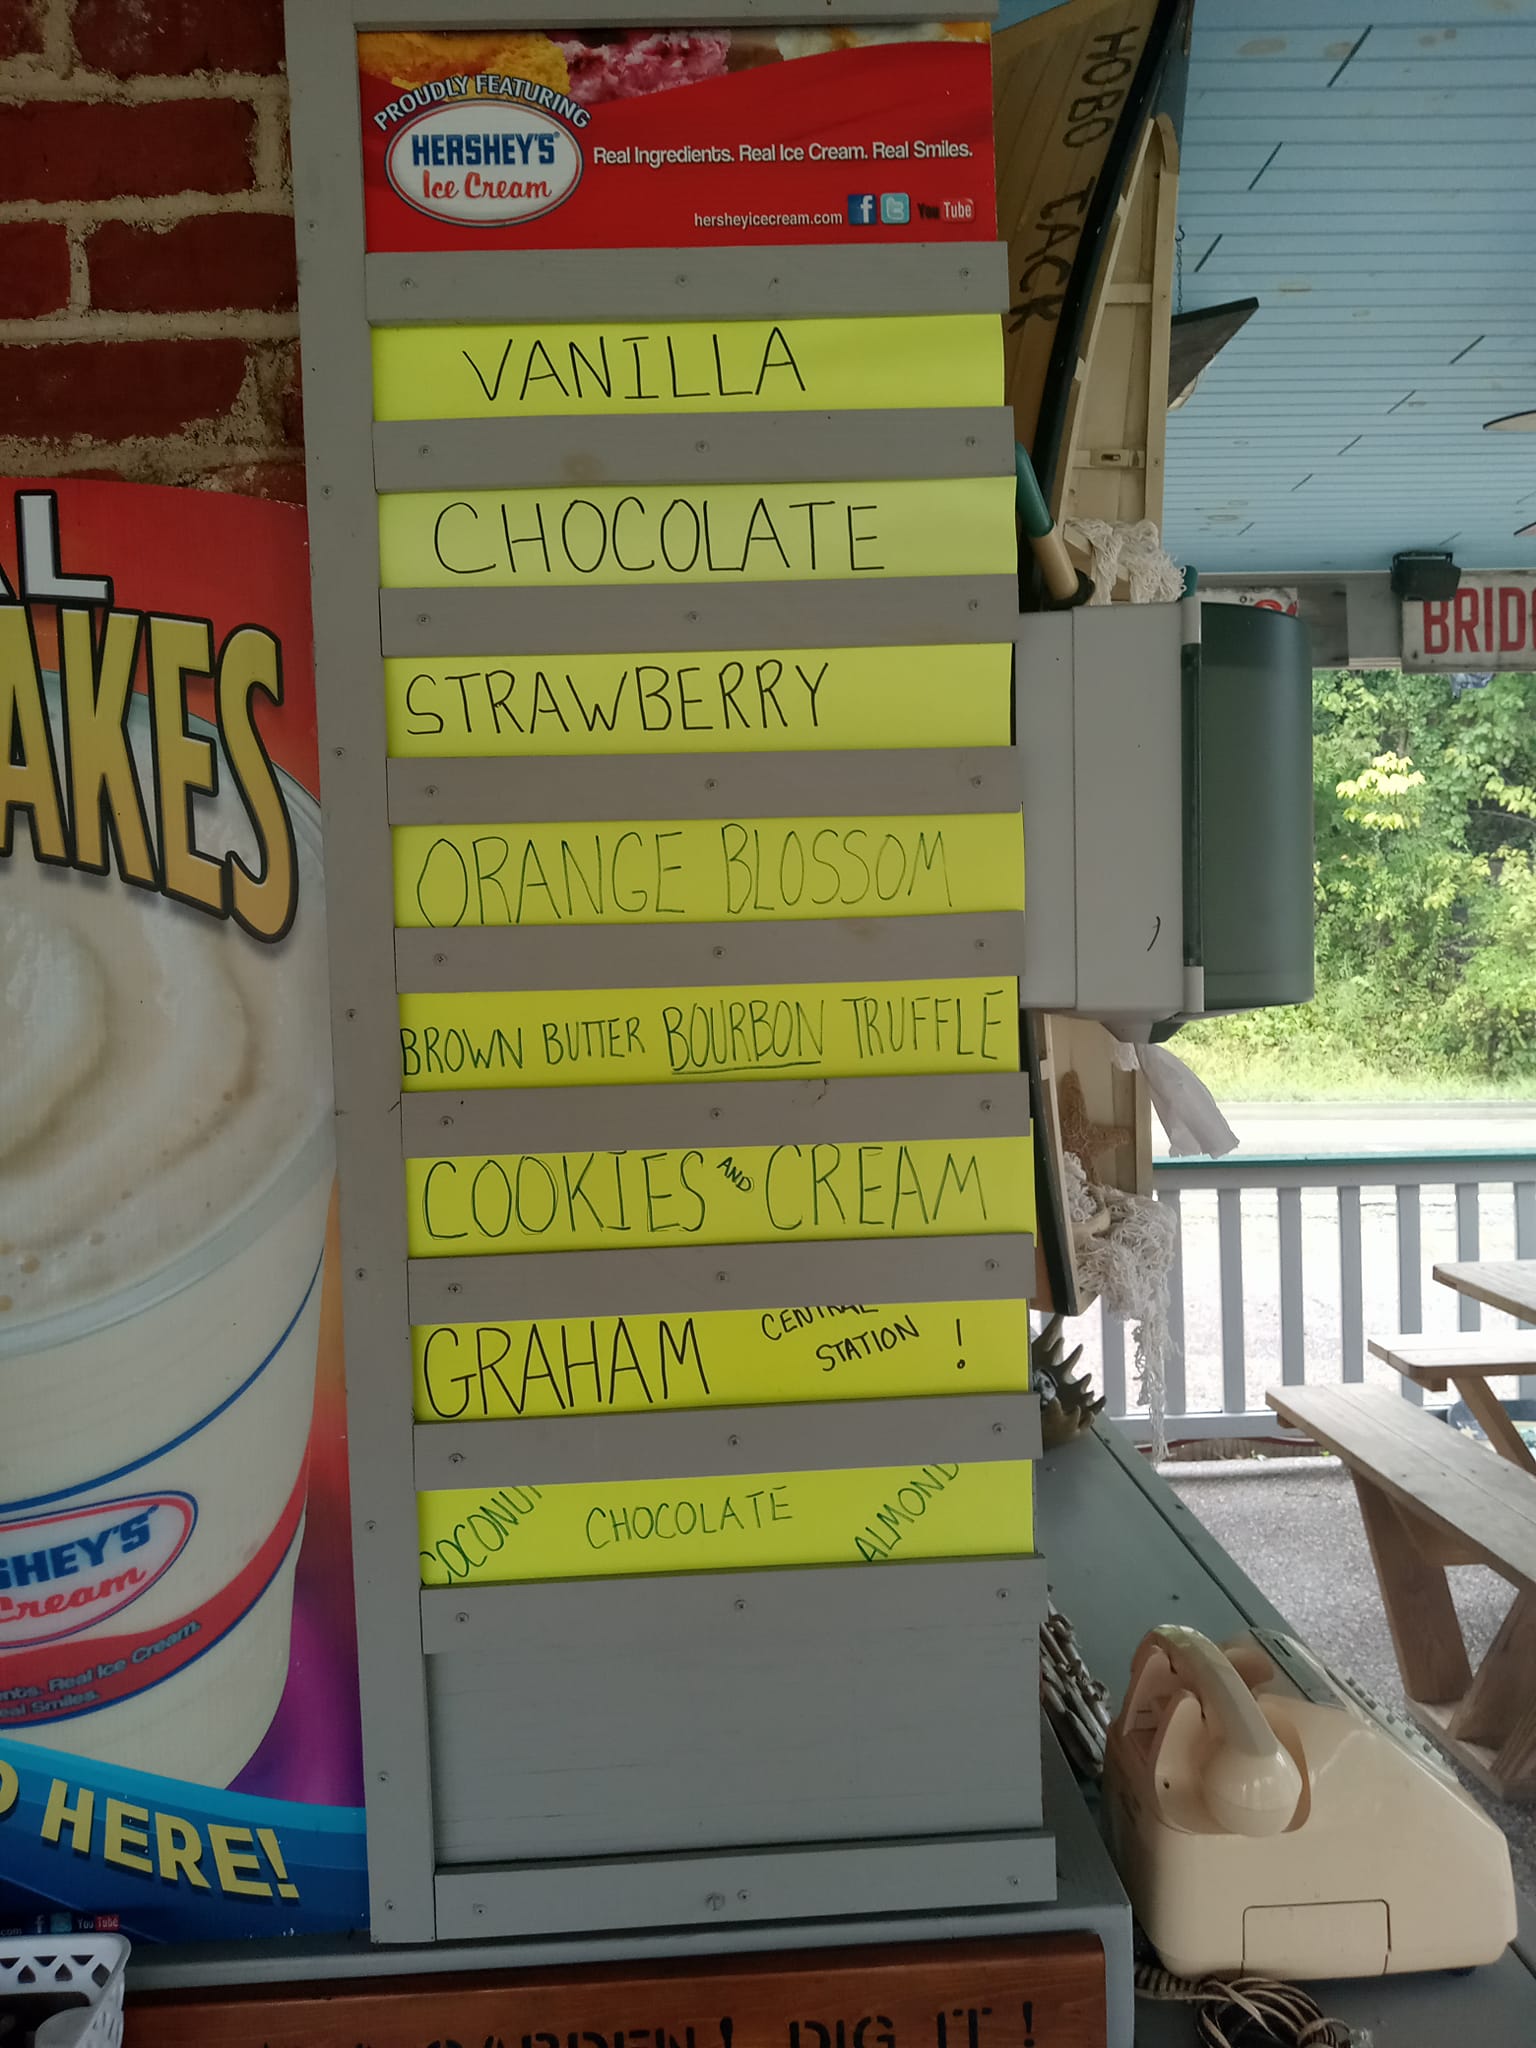 PROUDLY FEATURING
HERSHEY'S
Ice Cream
Real Ingredients. Real Ice Cream. Real Smiles.
hersheyicecream.com f t You Tube
HOBO TACK
VANILLA
CHOCOLATE
STRAWBERRY
ORANGE BLOSSOM
BROWN BUTTER BOURBON TRUFFLE
COOKIES AND CREAM
GRAHAM CENTRAL STATION !
COCONUT CHOCOLATE ALMOND
BRID
AL
AKES
SHEY'S
Cream
nts. Real Ice Cream.
eal Smiles.
HERE!
.com f You Tube
GARDEN! DIG IT!